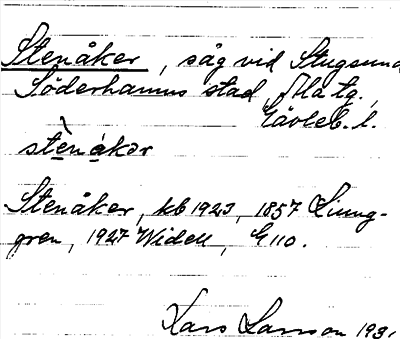 Stenåker, såg vid Stugsund
Söderhamns stad, Ala tg.,
Gävleb. l.
stènákər
Stenåker, kb 1923, 1857 Ljung-
gren, 1927 Widell, G 110.
Lars Larsson 193